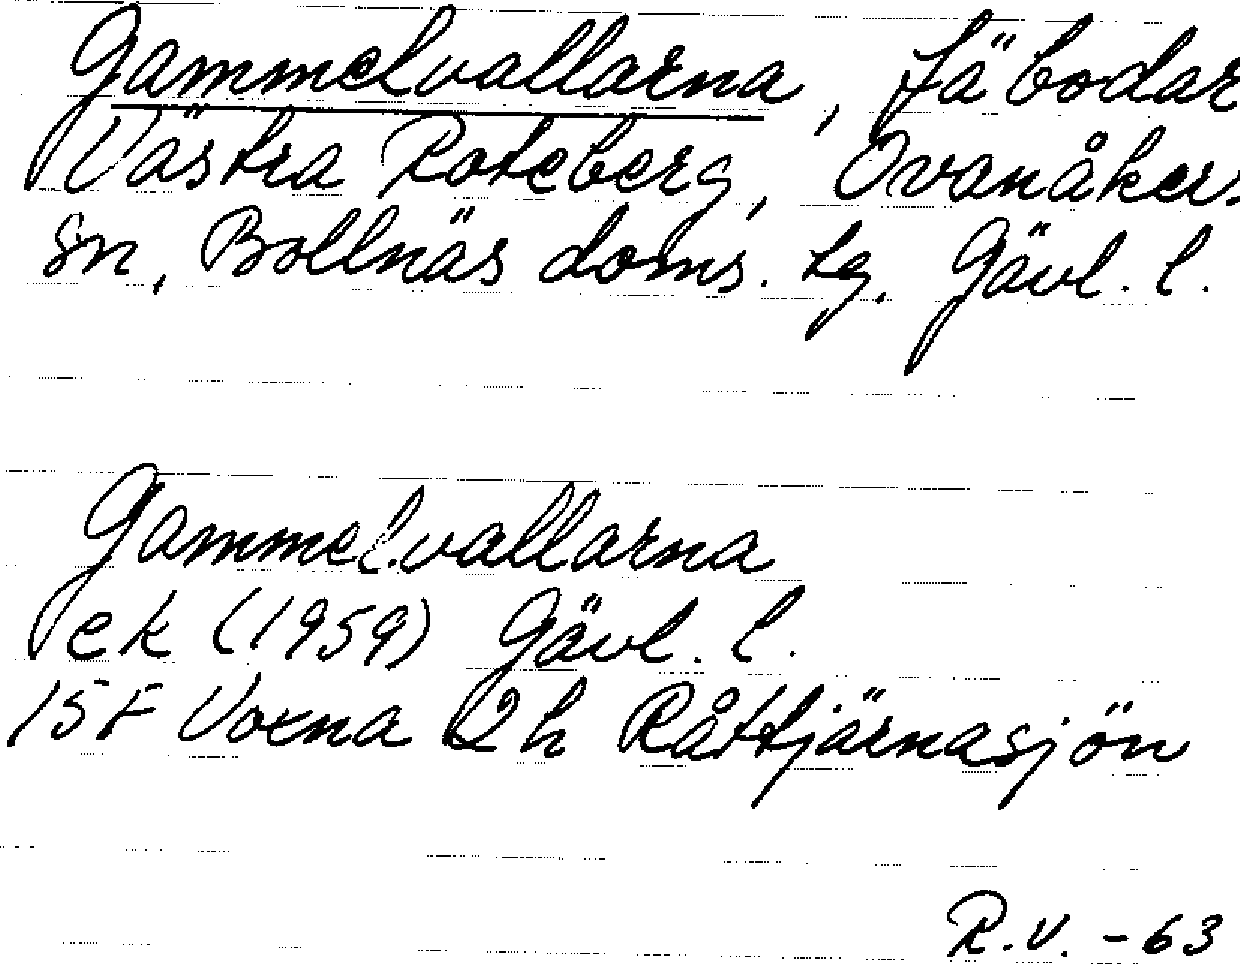 Gammelvallarna, Fäbodar
Västra Roteberg, Ovanåkers
sn, Bollnäs doms. tg. Gävl. l.
Gammelvallarna
ek (1959) Gävl. l.
15F Voxna 2h Råttjärnasjön
R.V. -63